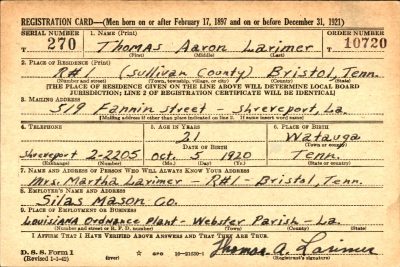 REGISTRATION CARD—(Men born on or after February 17, 1897 and on or before December 31, 1921)
SERIAL NUMBER 1. NAME (Print) ORDER NUMBER
T 270 Thomas Aaron Larimer 10720
(First) (Middle) (Last)
2. PLACE OF RESIDENCE (Print)
R#1 (Sullivan County) Bristol, Tenn.
(Number and street) (Town, township, village, or city) (County) (State)
[THE PLACE OF RESIDENCE GIVEN ON THE LINE ABOVE WILL DETERMINE LOCAL BOARD
JURISDICTION; LINE 2 OF REGISTRATION CERTIFICATE WILL BE IDENTICAL]
3. MAILING ADDRESS
519 Fannin Street - Shreveport, La.
[Mailing address if other than place indicated on line 2. If same insert word same]
4. TELEPHONE 5. AGE IN YEARS 6. PLACE OF BIRTH
21 Watauga
DATE OF BIRTH (Town or county)
Shreveport 2-2205 Oct. 5 1920 Tenn.
(Exchange) (Number) (Mo.) (Day) (Yr.) (State or country)
7. NAME AND ADDRESS OF PERSON WHO WILL ALWAYS KNOW YOUR ADDRESS
Mrs. Martha Larimer - R#1 - Bristol, Tenn.
8. EMPLOYER'S NAME AND ADDRESS
Silas Mason Co.
9. PLACE OF EMPLOYMENT OR BUSINESS
Louisiana Ordnance Plant - Webster Parish - La.
(Number and street or R. F. D. number) (Town) (County) (State)
I AFFIRM THAT I HAVE VERIFIED ABOVE ANSWERS AND THAT THEY ARE TRUE.
D. S. S. Form 1 GPO 16—21630-1 Thomas A. Larimer
(Revised 1-1-42) (over) (Registrant's signature)